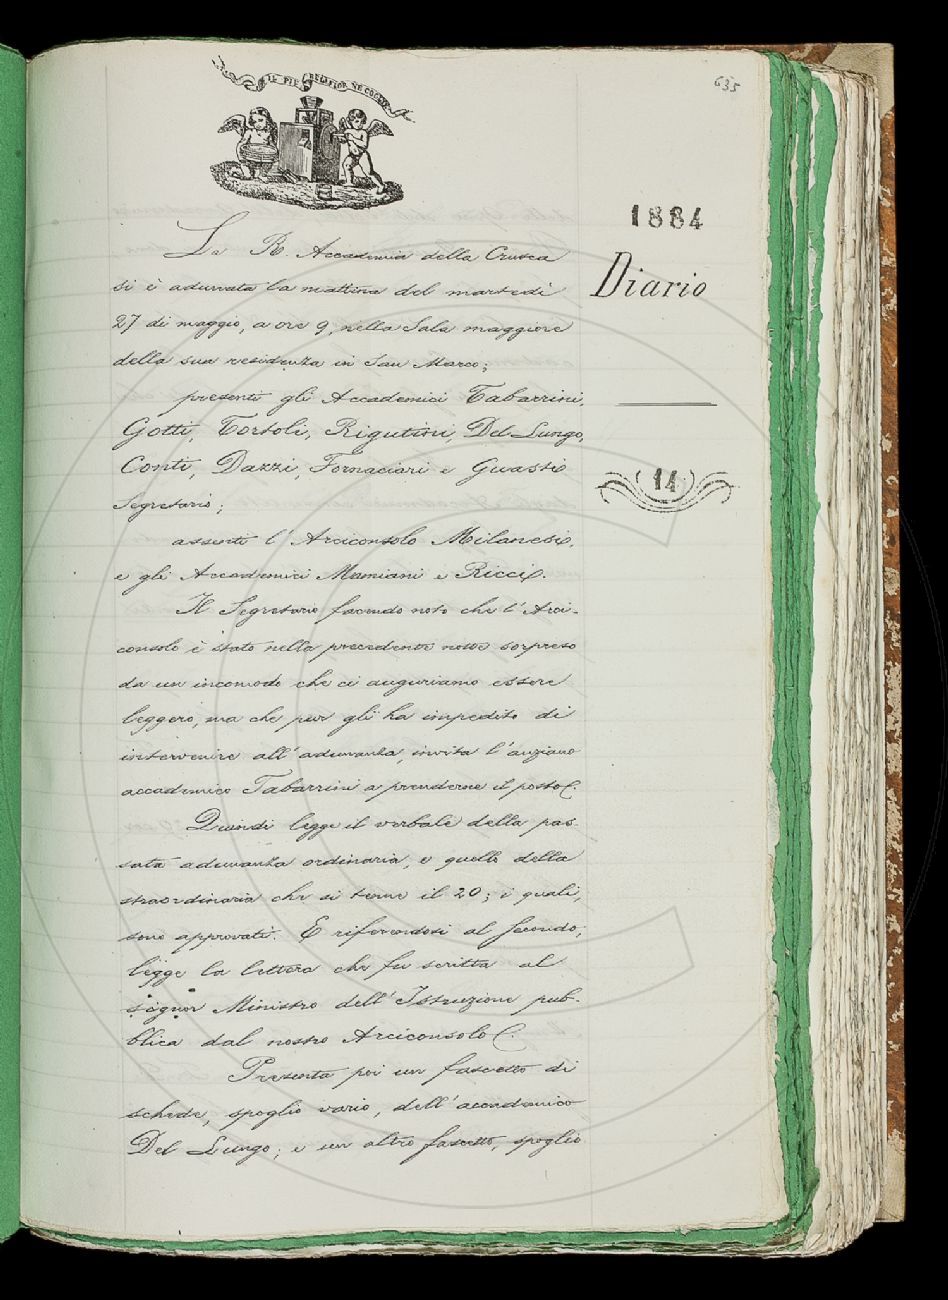 IL PIÙ BEL FIOR NE COGLIE
635
1884
Diario
14
La R. Accademia della Crusca
si è adunata la mattina del martedì
27 di maggio, a ore 9, nella Sala maggiore
della sua residenza in San Marco;
presenti gli Accademici Tabarrini,
Gotti, Tortoli, Rigutini, Del Lungo,
Conti, Dazzi, Fornaciari e Guasti
Segretario;
assenti l'Arciconsolo Milanesi,
e gli Accademici Mamiani e Ricci.
Il Segretario facendo noto che l'Arci-
consolo è stato nella precedente notte sorpreso
da un incomodo che ci auguriamo essere
leggero, ma che pur gli ha impedito di
intervenire all'adunanza, invita l'anziano
accademico Tabarrini a prenderne il posto.
Quindi legge il verbale della pas-
sata adunanza ordinaria, e quello della
straordinaria che si tenne il 20; i quali,
sono approvati. E riferendosi al secondo,
legge la lettera che fu scritta al
signor Ministro dell'Istruzione pub-
blica dal nostro Arciconsolo.
Presenta poi un fascetto di
schede, spoglio vario, dell'accademico
Del Lungo; e un altro fascetto, spoglio